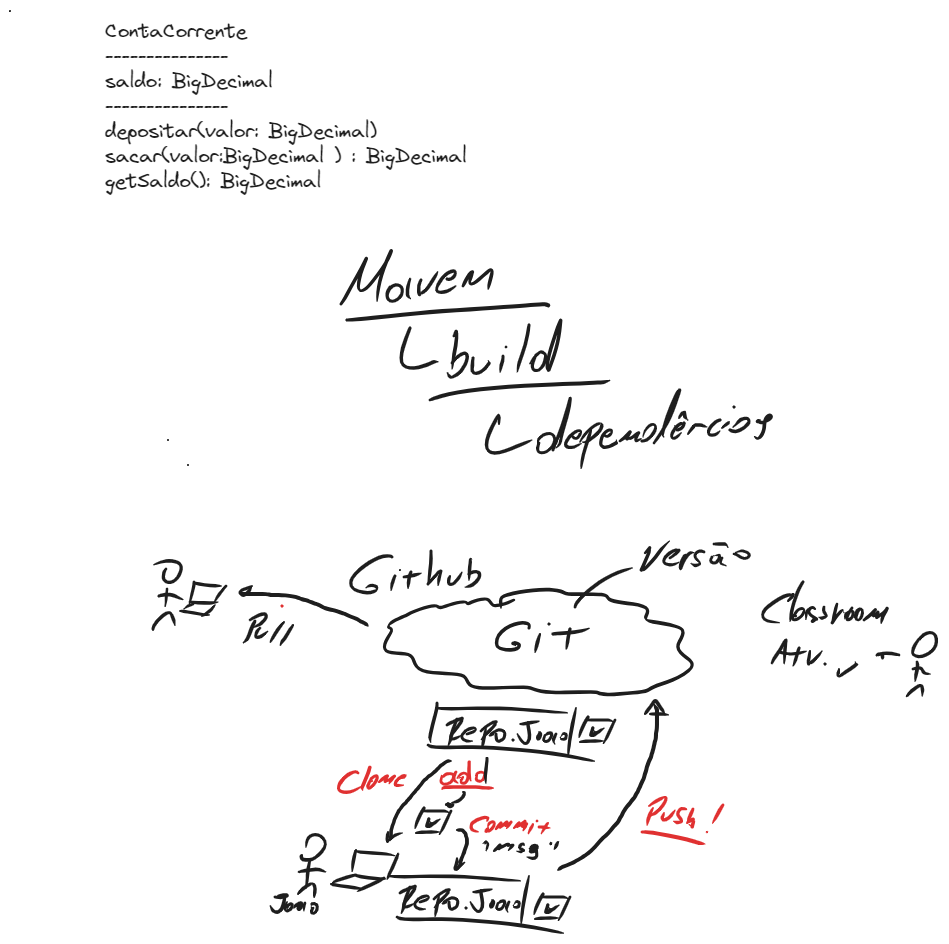 ContaCorrente
---------------
saldo: BigDecimal
---------------
depositar(valor: BigDecimal)
sacar(valor:BigDecimal ) : BigDecimal
getSaldo(): BigDecimal
Mavem
build
dependências
Versão
Github
Git
Pull
Classroom
Atv.
Repo.Joao
Clone
add
Commit
"msg"
Push!
Joao
Repo.Joao